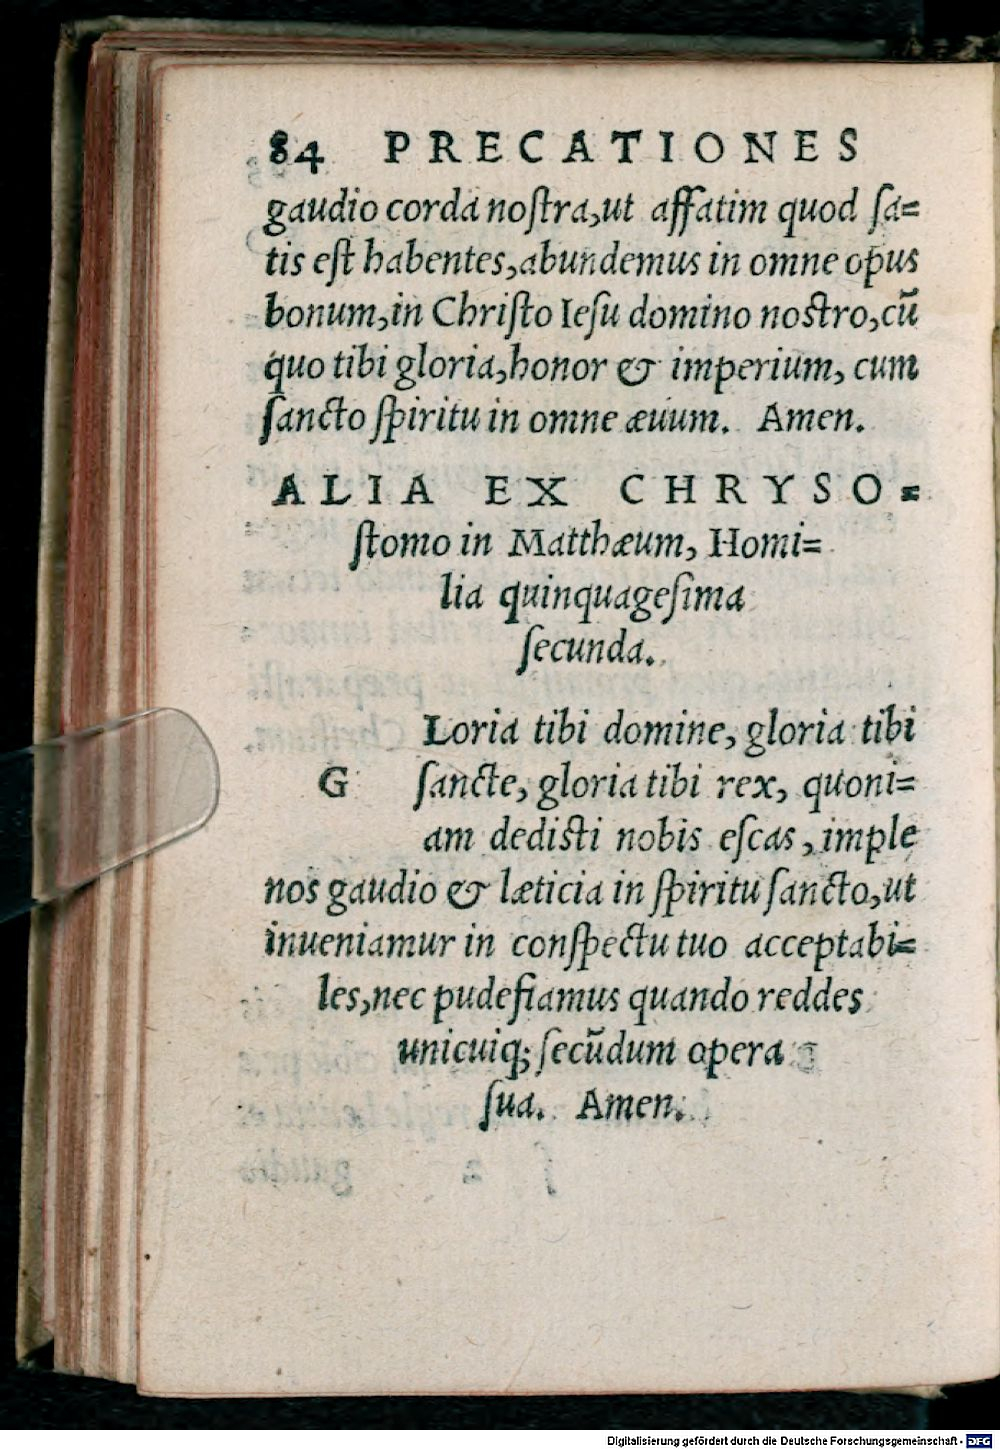 84 PRECATIONES
gaudio corda noſtra,ut affatim quod ſa=
tis eſt habentes,abundemus in omne opus
bonum,in Chriſto Ieſu domino noſtro,cũ
quo tibi gloria,honor & imperium, cum
ſancto ſpiritu in omne æuum. Amen.
ALIA EX CHRYSO=
ſtomo in Matthæum, Homi=
lia quinquageſima
ſecunda.
Loria tibi domine, gloria tibi
G ſancte, gloria tibi rex, quoni=
am dedisti nobis eſcas, imple
nos gaudio & læticia in ſpiritu ſancto,ut
inueniamur in conſpectu tuo acceptabi=
les,nec pudefiamus quando reddes
unicuiq; ſecũdum opera
ſua. Amen.
Digitalisierung gefördert durch die Deutsche Forschungsgemeinschaft - DFG